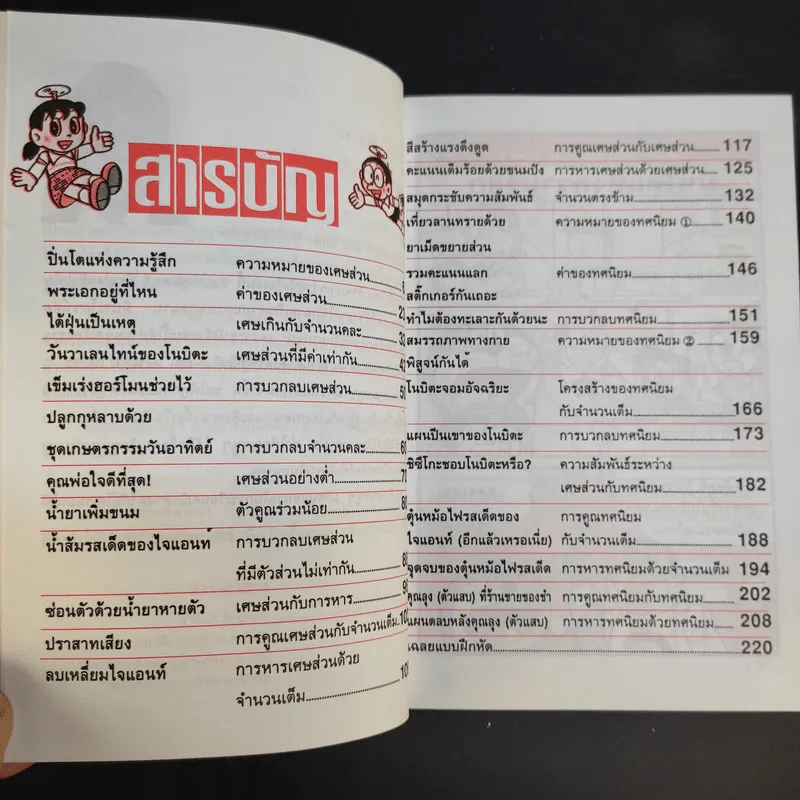 สารบัญ
ปิ่นโตแห่งความรู้สึก ความหมายของเศษส่วน
พระเอกอยู่ที่ไหน ค่าของเศษส่วน
ไต้ฝุ่นเป็นเหตุ เศษเกินกับจำนวนคละ
วันวาเลนไทน์ของโนบิตะ เศษส่วนที่มีค่าเท่ากัน
เข็มเร่งฮอร์โมนช่วยไว้ การบวกลบเศษส่วน
ปลูกกุหลาบด้วย
ชุดเกษตรกรรมวันอาทิตย์ การบวกลบจำนวนคละ
คุณพ่อใจดีที่สุด! เศษส่วนอย่างต่ำ
น้ำยาเพิ่มขนม ตัวคูณร่วมน้อย
น้ำส้มรสเด็ดของไจแอนท์ การบวกลบเศษส่วน
ที่มีตัวส่วนไม่เท่ากัน
ซ่อนตัวด้วยน้ำยาหายตัว เศษส่วนกับการหาร
ปราสาทเสียง การคูณเศษส่วนกับจำนวนเต็ม
ลบเหลี่ยมไจแอนท์ การหารเศษส่วนด้วย
จำนวนเต็ม
สีสร้างแรงดึงดูด การคูณเศษส่วนกับเศษส่วน 117
คะแนนเต็มร้อยด้วยขนมปัง การหารเศษส่วนด้วยเศษส่วน 125
สมุดกระชับความสัมพันธ์ จำนวนตรงข้าม 132
เที่ยวลานทรายด้วย ความหมายของทศนิยม ① 140
ยาเม็ดขยายส่วน
รวมคะแนนแลก ค่าของทศนิยม 146
สติ๊กเกอร์กันเถอะ
ทำไมต้องทะเลาะกันด้วยนะ การบวกลบทศนิยม 151
สมรรถภาพทางกาย ความหมายของทศนิยม ② 159
พิสูจน์กันได้
โนบิตะจอมอัจฉริยะ โครงสร้างของทศนิยม
กับจำนวนเต็ม 166
แผนปืนเขาของโนบิตะ การบวกลบทศนิยม 173
ชิซึโกะชอบโนบิตะหรือ? ความสัมพันธ์ระหว่าง
เศษส่วนกับทศนิยม 182
ตุ๋นหม้อไฟรสเด็ดของ การคูณทศนิยม
ไจแอนท์ (อีกแล้วเหรอเนี่ย) กับจำนวนเต็ม 188
จุดจบของตุ๋นหม้อไฟรสเด็ด การหารทศนิยมด้วยจำนวนเต็ม 194
คุณลุง (ตัวแสบ) ที่ร้านขายของชำ การคูณทศนิยมกับทศนิยม 202
แผนตลบหลังคุณลุง (ตัวแสบ) การหารทศนิยมด้วยทศนิยม 208
เฉลยแบบฝึกหัด 220